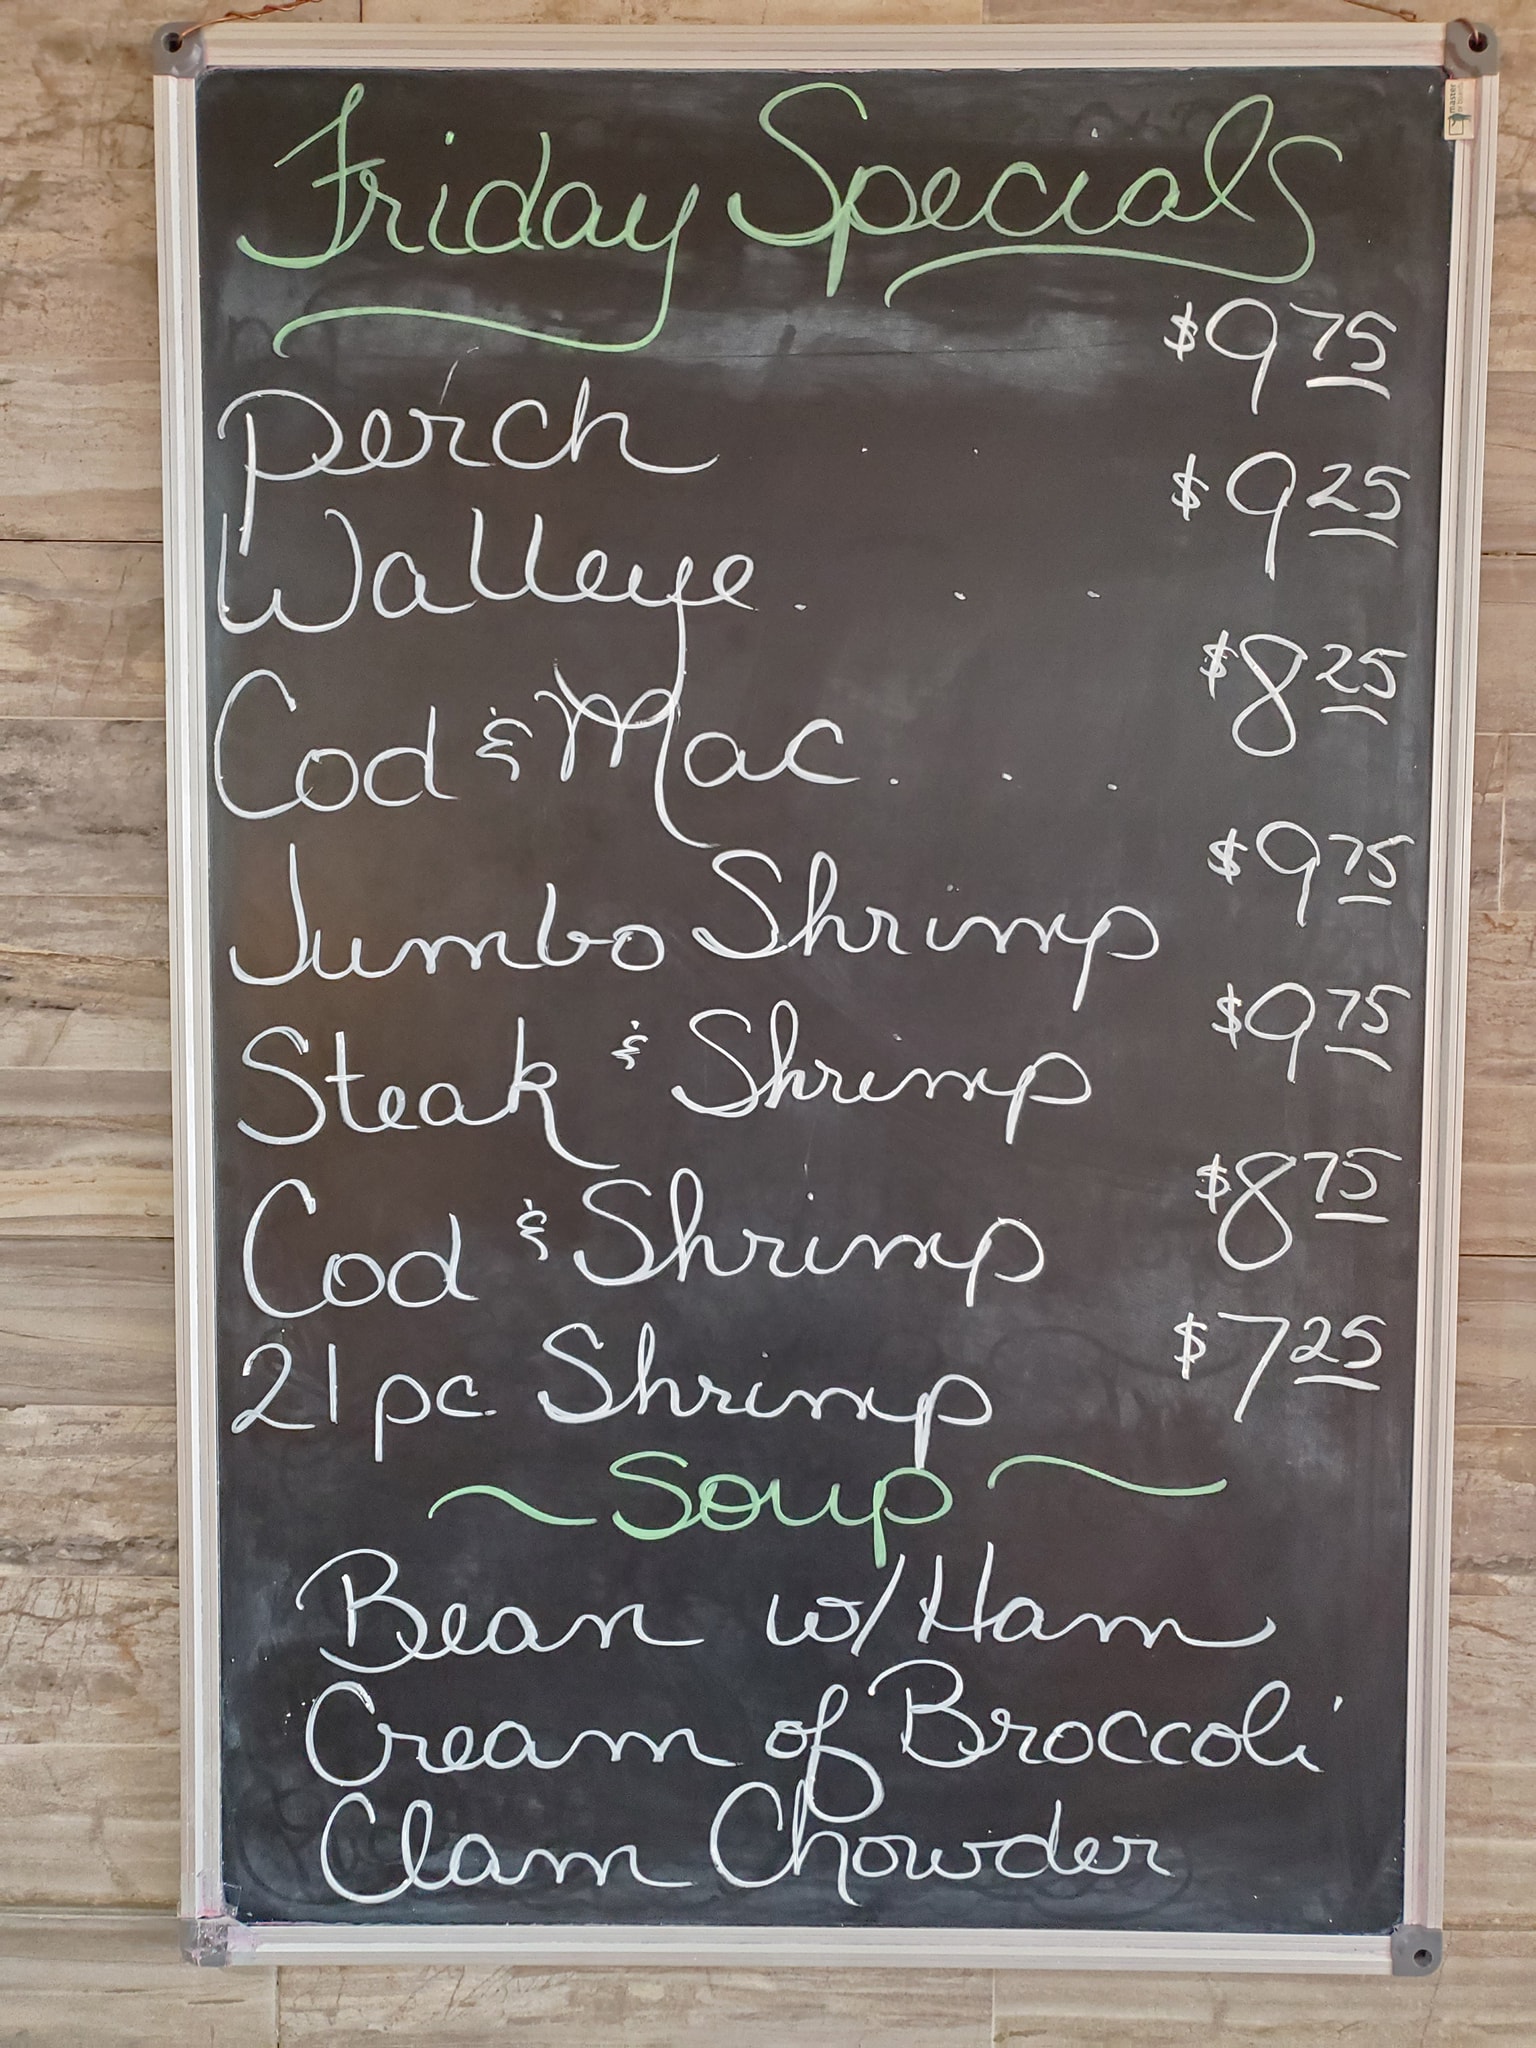 Friday Specials
Perch . . . $9 75
Walleye . . . $9 25
Cod & Mac . . . $8 25
Jumbo Shrimp $9 75
Steak & Shrimp $9 75
Cod & Shrimp $8 75
21 pc. Shrimp $7 25
~ Soup ~
Bean w/ Ham
Cream of Broccoli
Clam Chowder
master